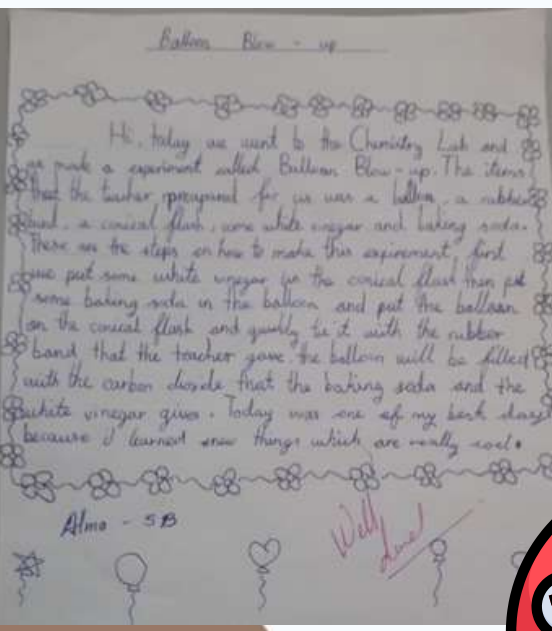 Balloon Blow - up
Hi, today we went to the Chemistry Lab and
we made a experiment called Balloon Blow-up. The items
that the teacher prepared for us was a balloon, a rubber
band, a conical flash, some white vinegar and baking soda.
These are the steps on how to make this expirement, first
we put some white vinegar in the conical flash then put
some baking soda in the balloon and put the balloon
on the conical flash and quickly tie it with the rubber
band, that the teacher gave. the balloon will be filled
with the carbon dioxide that the baking soda and the
white vinegar gives. Today was one of my best days
because i learned new things which are really cool.
Alma - 5B
Well
done!